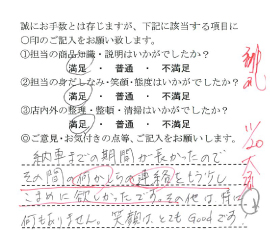 誠にお手数とは存じますが、下記に該当する項目に
〇印のご記入をお願い致します。
①担当の商品知識・説明はいかがでしたか?
満足 ・ 普通 ・ 不満足
②担当の身だしなみ・笑顔・態度はいかがでしたか?
満足 ・ 普通 ・ 不満足
③店内外の整理・整頓・清掃はいかがでしたか?
満足 ・ 普通 ・ 不満足
◎ご意見・お気付きの点等、ご記入をお願いします。
納車までの期間が長かったので
その間の何かしらの連絡をもう少し
こまめに欲しかったです。その他は
何もありません。笑顔は、とてもGoodです
11/20